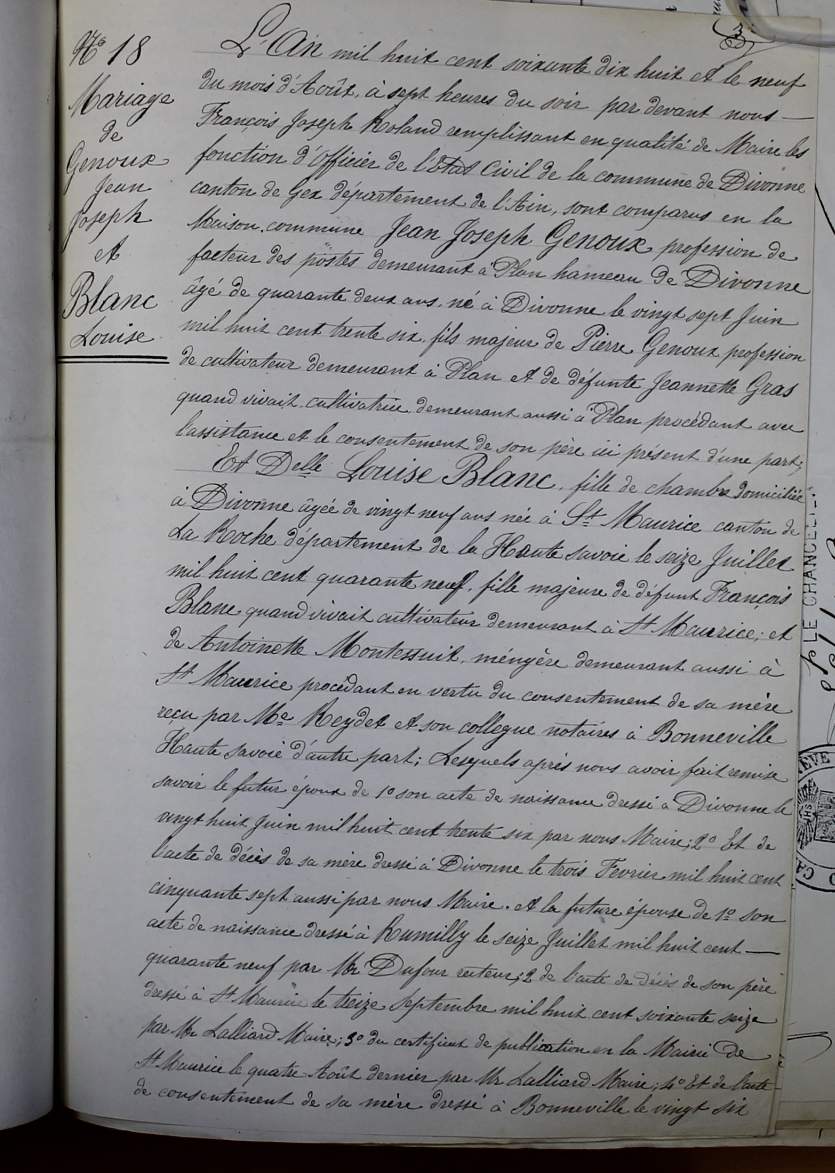 No 18
Mariage
de
Genoux
Jean
Joseph
et
Blanc
Louise
L'An mil huit cent soixante dix huit et le neuf
du mois d'Août, à sept heures du soir par devant nous —
François Joseph Roland remplissant en qualité de Maire les
fonction d'Officier de l'Etat Civil de la commune de Divonne
canton de Gex département de l'Ain, sont comparus en la
Maison commune Jean Joseph Genoux profession de
facteur des postes demeurant à Plan hameau de Divonne
âgé de quarante deux ans, né à Divonne le vingt sept Juin
mil huit cent trente six, fils majeur de Pierre Genoux profession
de cultivateur demeurant à Plan et de défunte Jeannette Gras
quand vivait cultivatrice demeurant aussi à Plan procédant avec
l'assistance et le consentement de son père ici présent d'une part;
Et Delle Louise Blanc, fille de chambre domiciliée
à Divonne âgée de vingt neuf ans née à St Maurice canton de
La Roche département de la Haute savoie le seize Juillet
mil huit cent quarante neuf, fille majeure de défunt François
Blanc quand vivait cultivateur demeurant à St Maurice; et
de Antoinette Montessuit, ménagère demeurant aussi à
St Maurice procédant en vertu du consentement de sa mère
reçu par Me Reydet et son collegue notaires à Bonneville
Haute savoie d'autre part; Lesquels après nous avoir fait remise
savoir le futur époux de 1o son acte de naissance dressé à Divonne le
vingt huit Juin mil huit cent trente six par nous Maire; 2o Et de
l'acte de décès de sa mère dressé à Divonne le trois Fevrier mil huit cent
cinquante sept aussi par nous Maire. et la future épouse de 1o son
acte de naissance dressé à Rumilly le seize Juillet mil huit cent —
quarante neuf par Mr Dufour recteur; 2 de l'acte de décès de son père
dressé à St Maurice le treize septembre mil huit cent soixante seize
par Mr Lalliard Maire; 3o du certificat de publication en la Mairie de
St Maurice le quatre Août dernier par Mr Lalliard Maire; 4o Et de l'acte
de consentement de sa mère dressé à Bonneville le vingt six
LE CHANCELIER